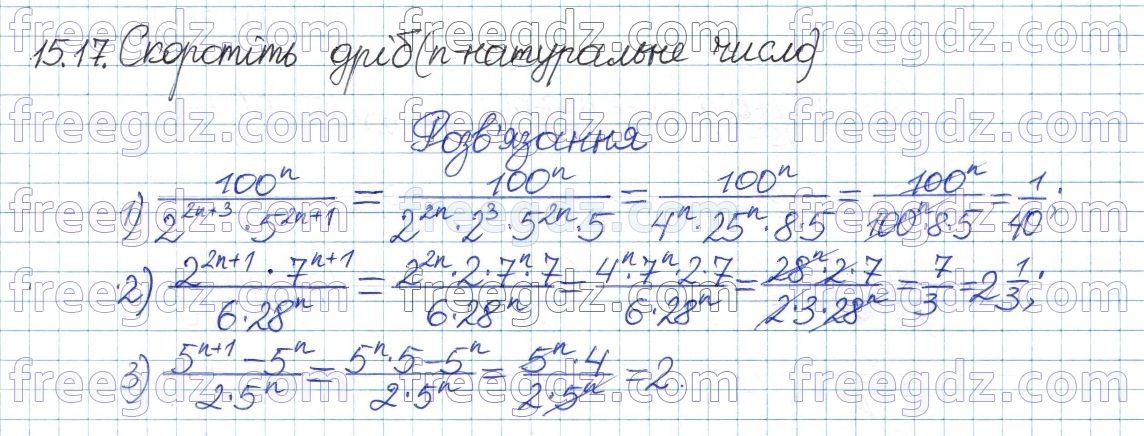 15.17. Скоротіть дріб (n-натуральне число)
Розв'язання
1) 100ⁿ/(2²ⁿ⁺³ · 5²ⁿ⁺¹) = 100ⁿ/(2²ⁿ · 2³ · 5²ⁿ · 5) = 100ⁿ/(4ⁿ · 25ⁿ · 8 · 5) = 100ⁿ/(100ⁿ · 8 · 5) = 1/40;
2) (2²ⁿ⁺¹ · 7ⁿ⁺¹)/(6 · 28ⁿ) = (2²ⁿ · 2 · 7ⁿ · 7)/(6 · 28ⁿ) = (4ⁿ · 7ⁿ · 2 · 7)/(6 · 28ⁿ) = (28ⁿ · 2 · 7)/(2 · 3 · 28ⁿ) = 7/3 = 2 1/3;
3) (5ⁿ⁺¹ − 5ⁿ)/(2 · 5ⁿ) = (5ⁿ · 5 − 5ⁿ)/(2 · 5ⁿ) = (5ⁿ · 4)/(2 · 5ⁿ) = 2.